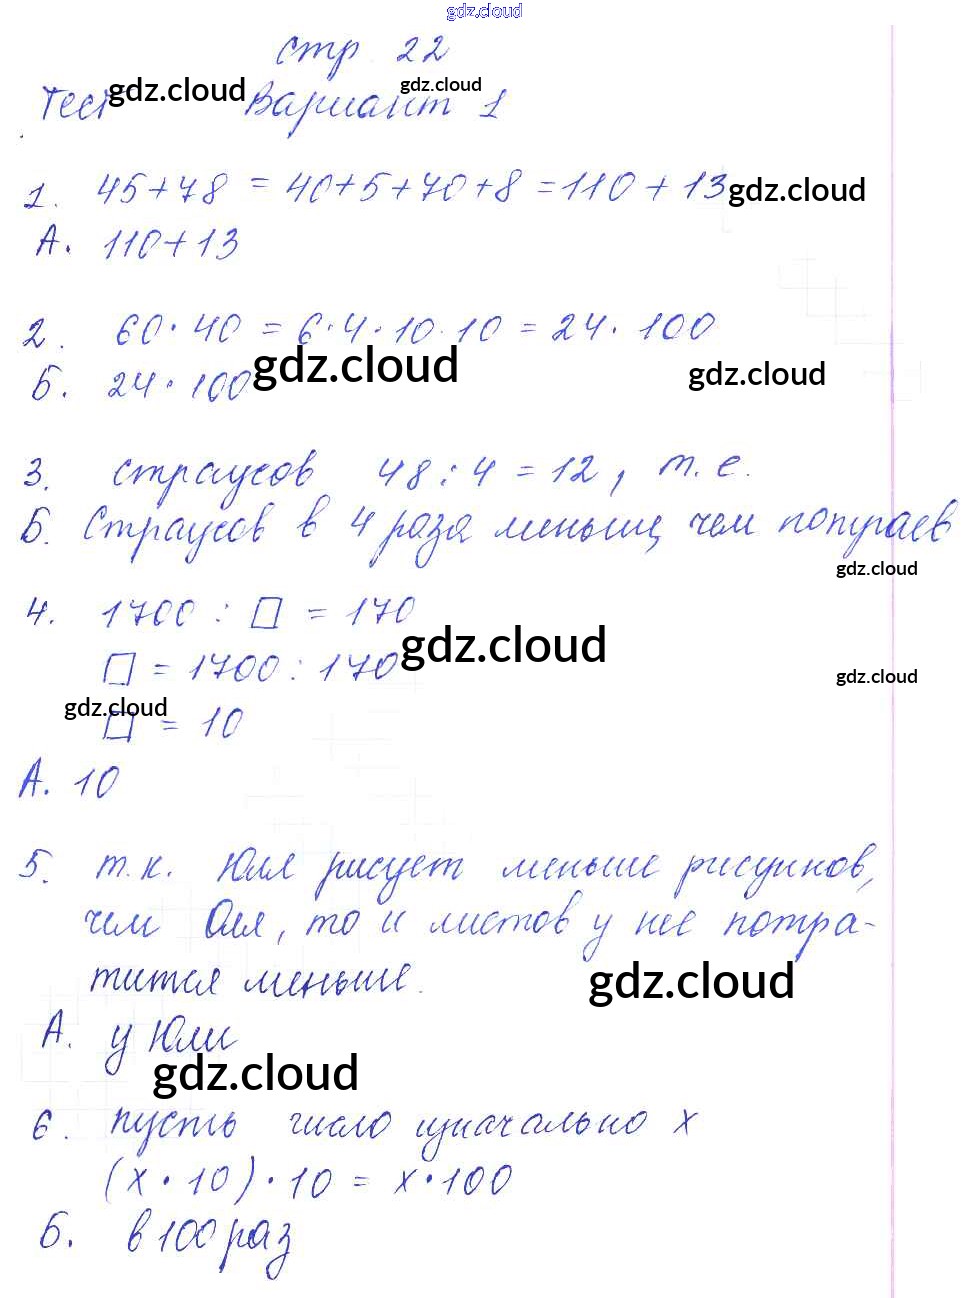 gdz.cloud
стр 22
Тест gdz.cloud Вариант 1 gdz.cloud
1. 45+78 = 40+5+70+8 = 110 + 13 gdz.cloud
А. 110+13
2. 60·40 = 6·4·10·10 = 24·100
Б. 24·100 gdz.cloud gdz.cloud
3. страусов 48:4 = 12, т.е.
Б. Страусов в 4 раза меньше, чем попугаев
gdz.cloud
4. 1700 : □ = 170
□ = 1700 : 170 gdz.cloud
gdz.cloud
gdz.cloud
□ = 10
А. 10
5. т.к. Юля рисует меньше рисунков,
чем Оля, то и листов у неё потра-
тится меньше.
gdz.cloud
А. у Юли
gdz.cloud
6. пусть число изначально х
(х·10)·10 = х·100
Б. в 100 раз